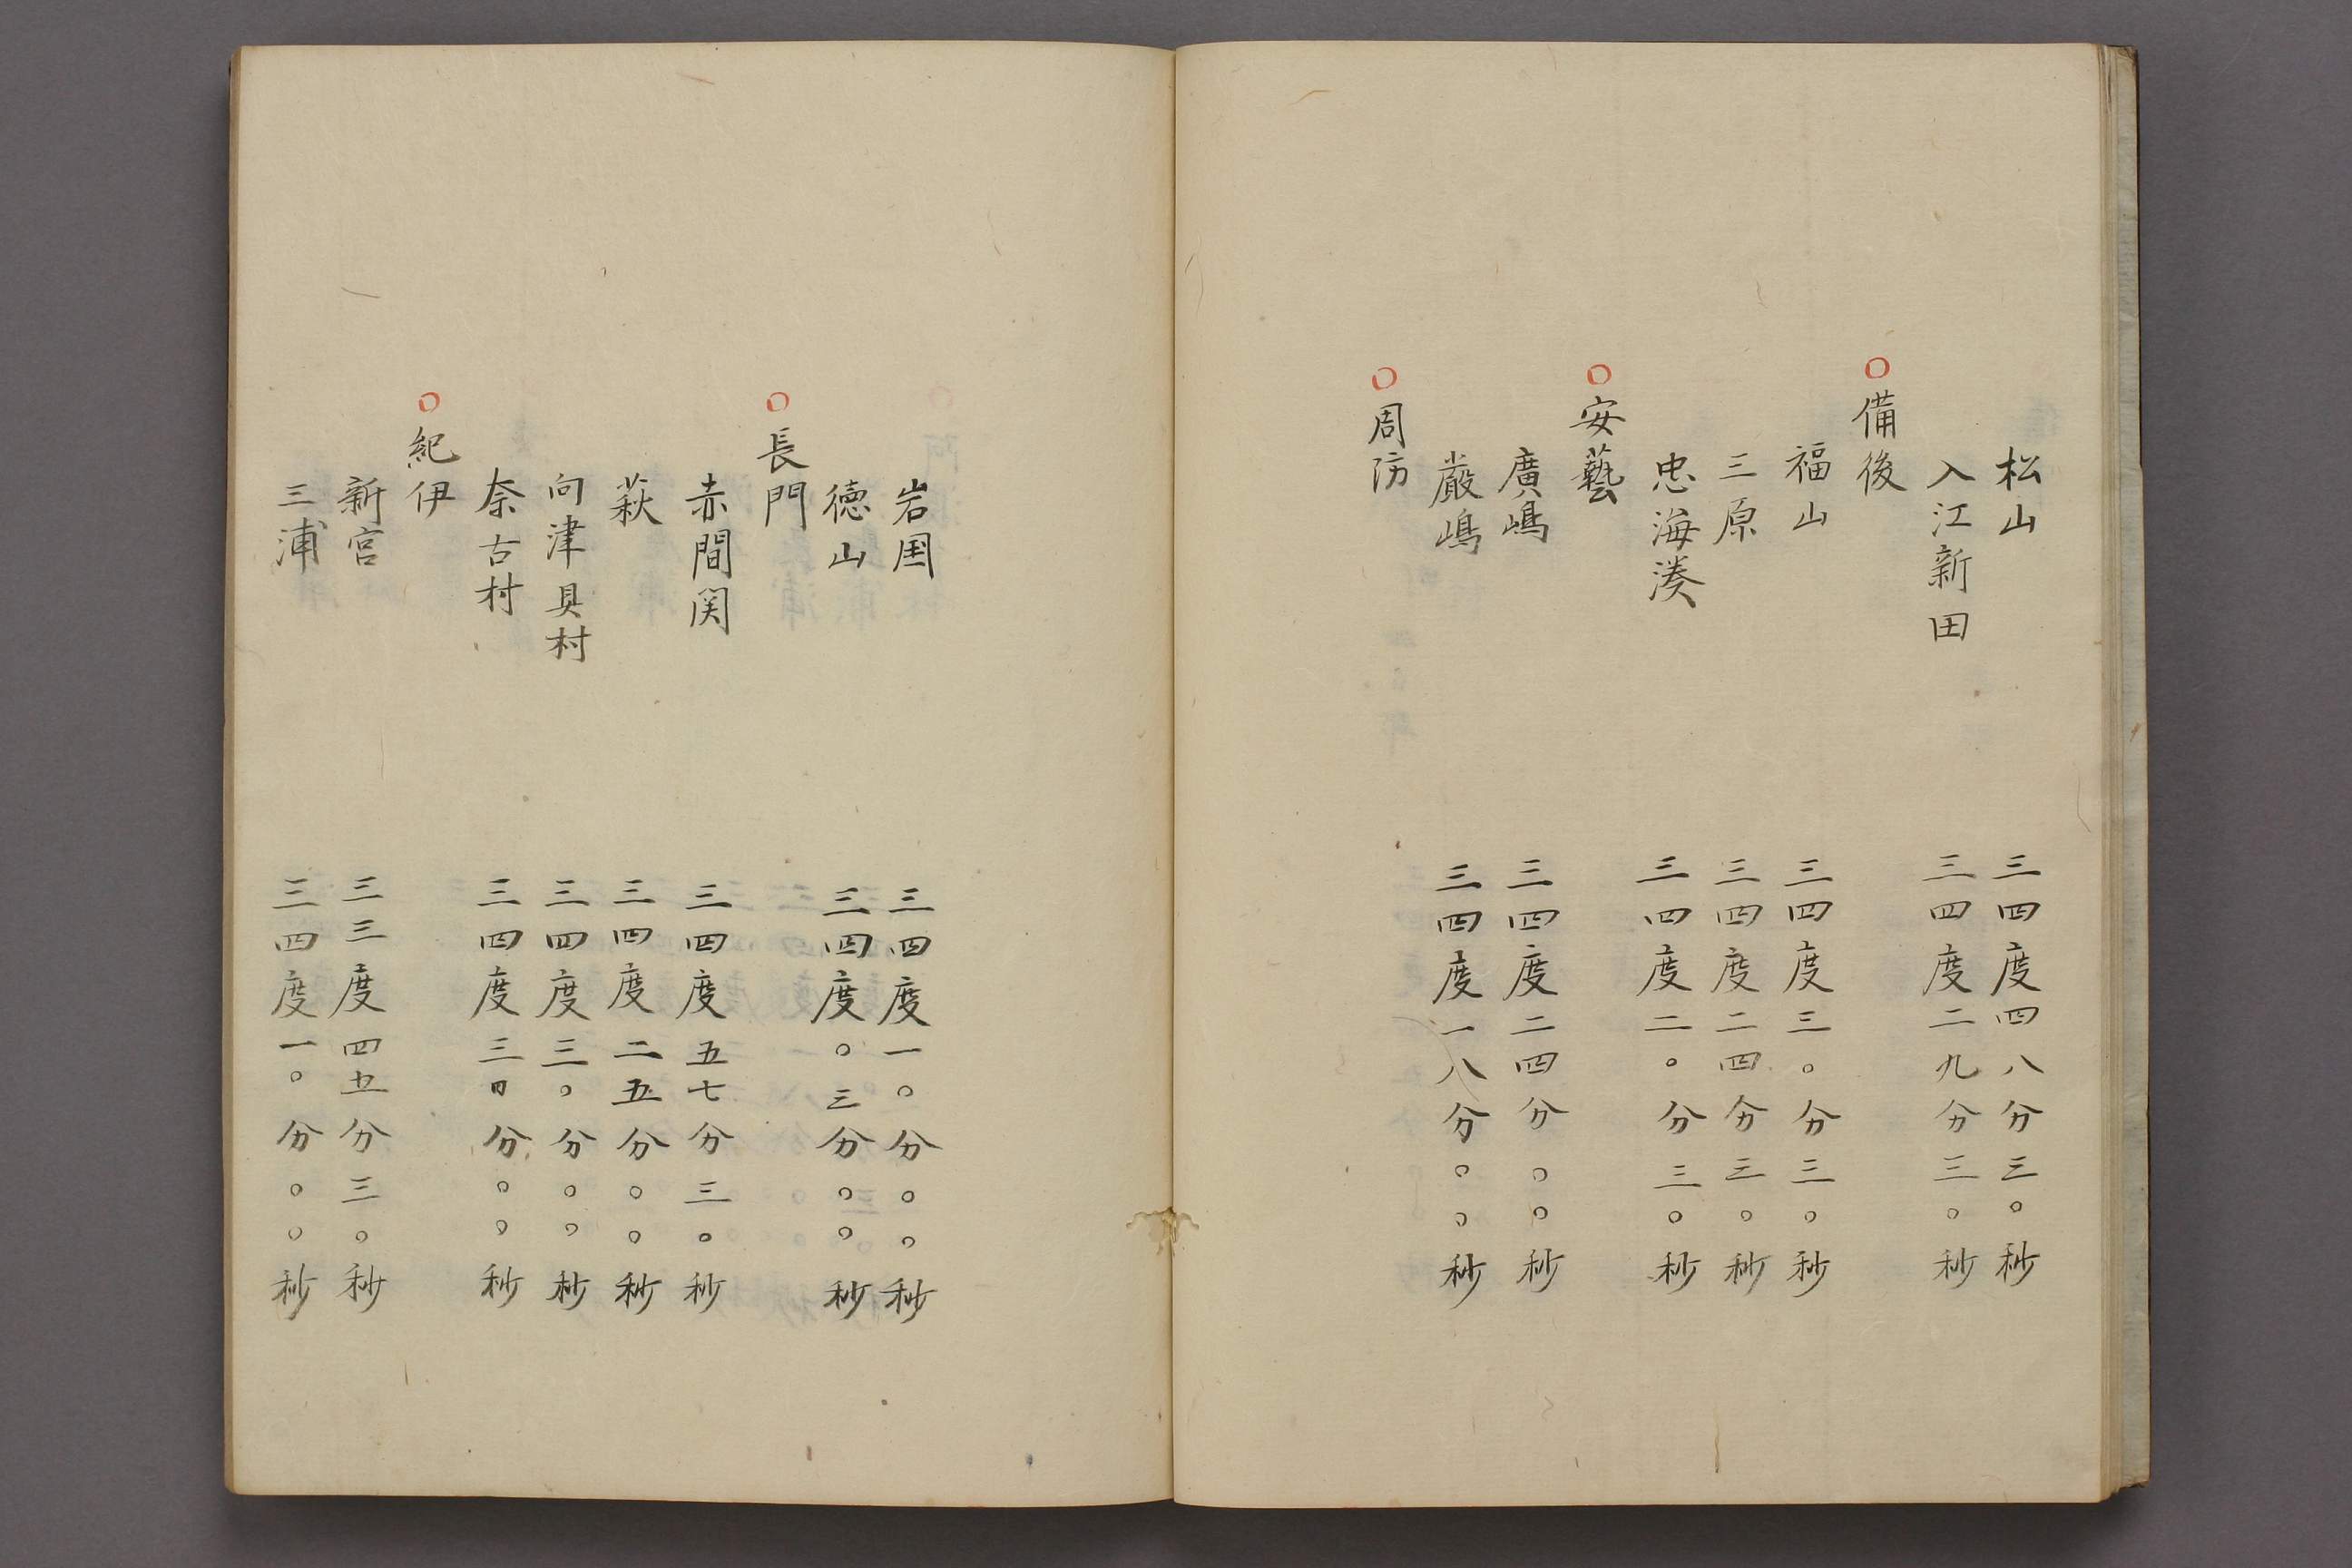 松山 三四度四八分三〇秒
入江新田 三四度二九分三〇秒
〇備後
福山 三四度三〇分三〇秒
三原 三四度二四分三〇秒
忠海湊 三四度二〇分三〇秒
〇安藝
廣嶋 三四度二四分〇〇秒
嚴嶋 三四度一八分〇〇秒
〇周防
岩国 三四度一〇分〇〇秒
徳山 三四度〇三分〇〇秒
〇長門
赤間関 三四度五七分三〇秒
萩 三四度二五分〇〇秒
向津具村 三四度三〇分〇〇秒
奈古村 三四度三四分〇〇秒
〇紀伊
新宮 三三度四五分三〇秒
三浦 三四度一〇分〇〇秒